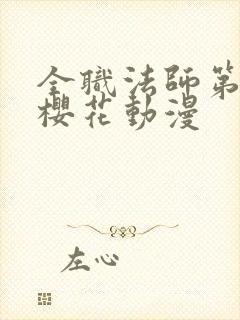 全職法師第
櫻花動漫
左心